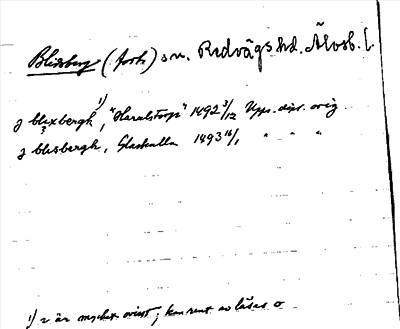 Blidsberg (förs) sn. Redvägs hd. Älvsb. l.
j blexbergh 1), "Haralstorp" 1492 3/12 Upps. dipl. orig
j blisbergh, Glashulla 1493 16/1 " " "
1) x är mycket ovisst; kan rent av läsas o